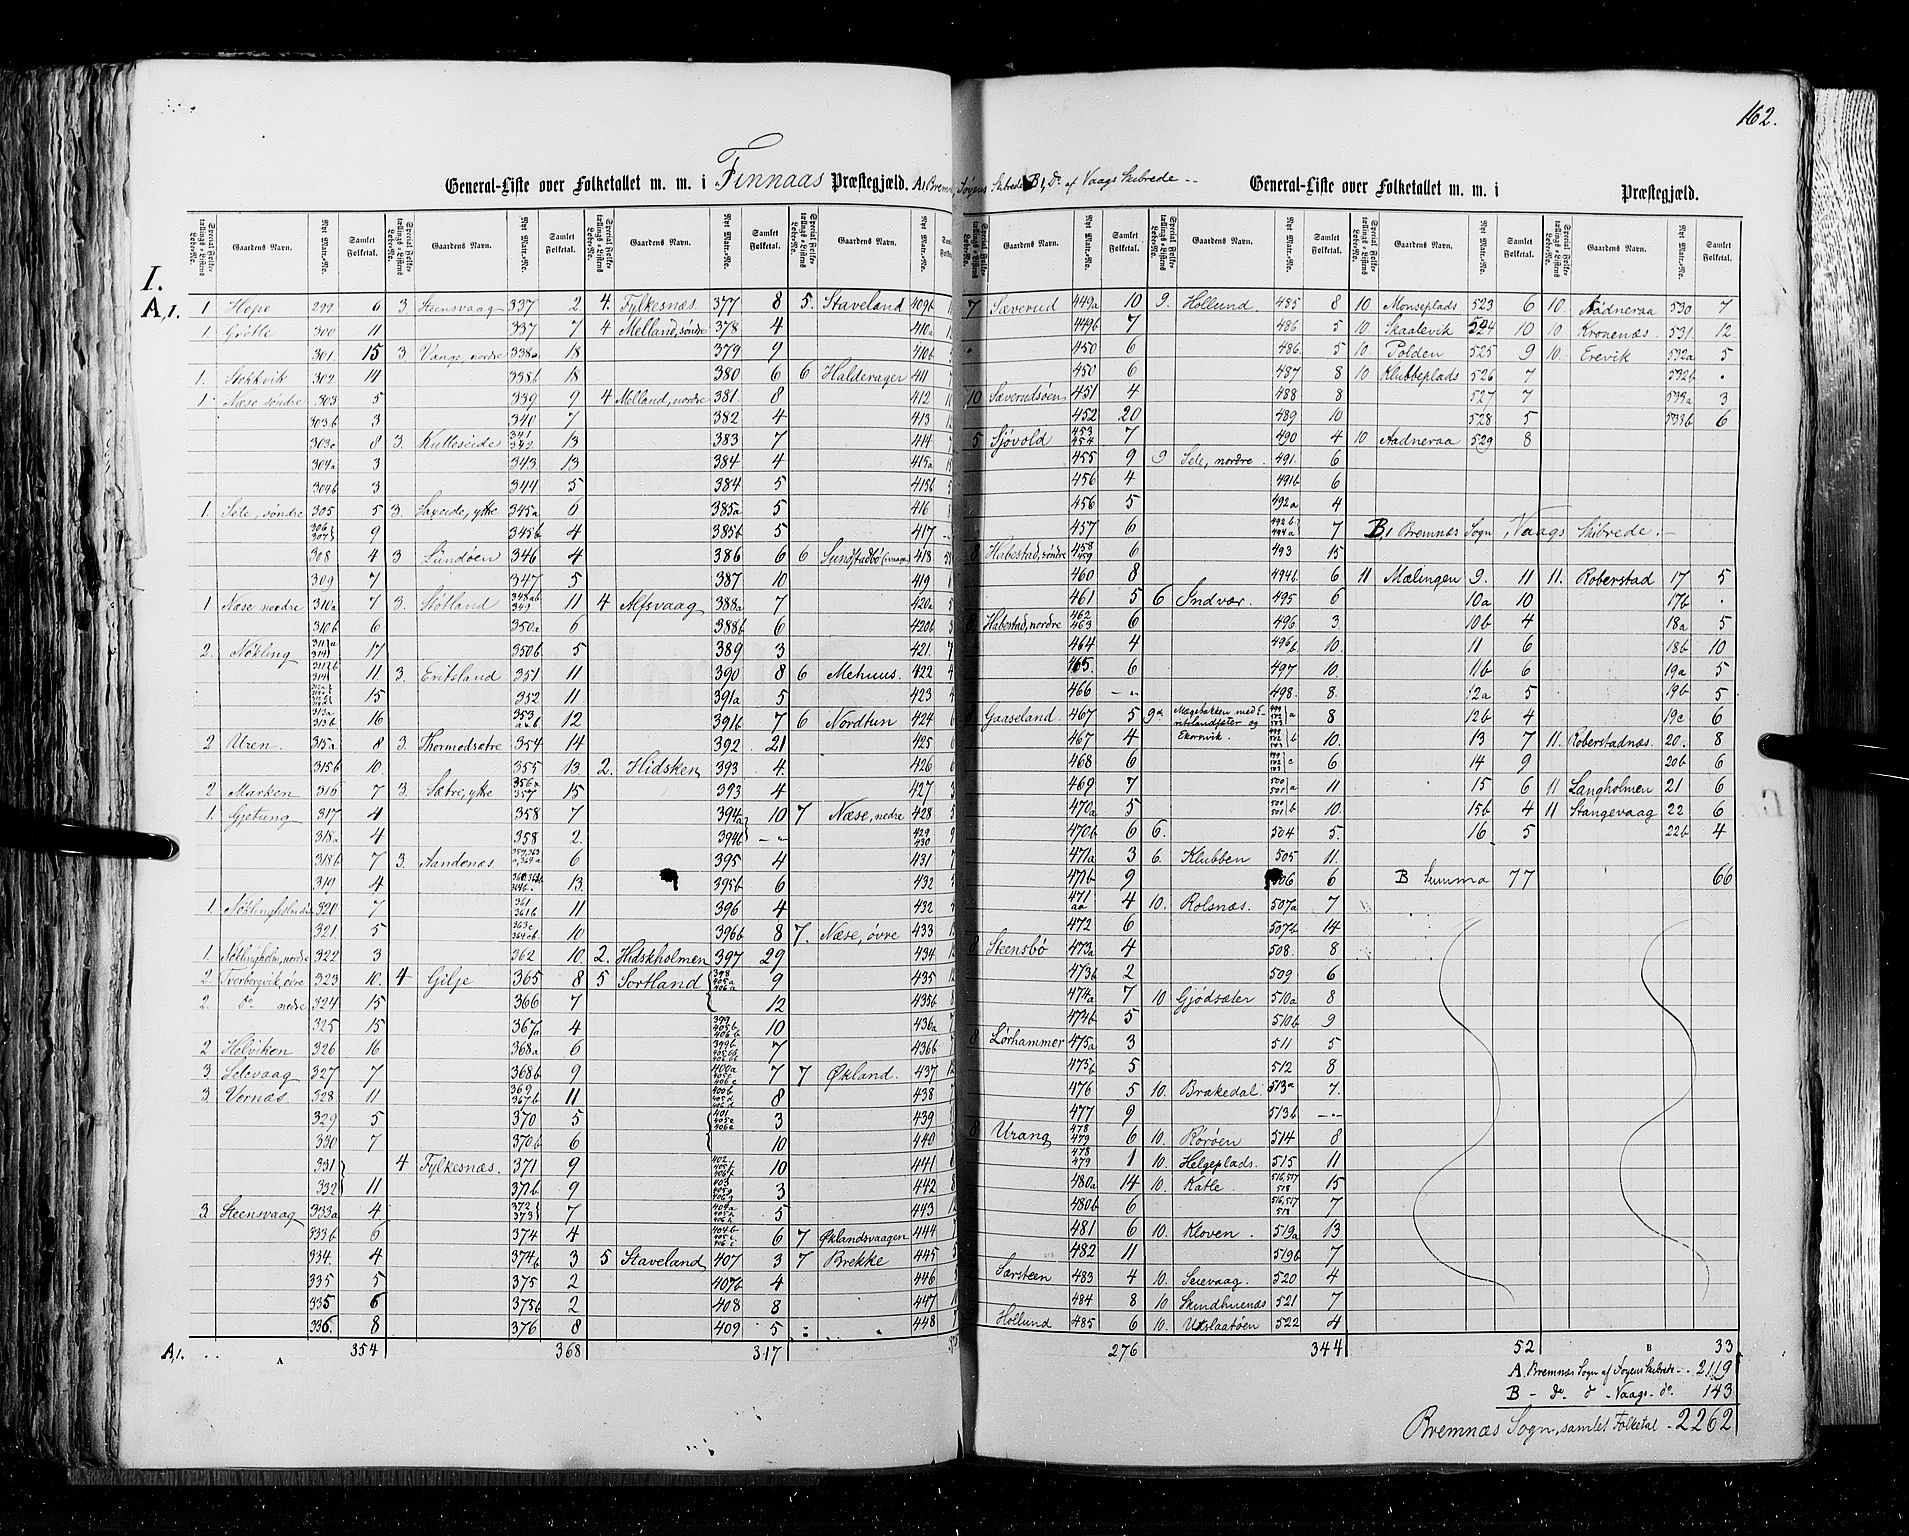 162.
General-Liste over Folketallet m. m. i Finnaas Præstegjæld.
B, Do. af Vaags Skibrede
General-Liste over Folketallet m. m. i Præstegjæld.
Gaardens Navn. Nyt Matr.-No. Samlet Folketal.
I.
A,1.
1 Hope 299 6
1 Grötle 300 11
301 15
1. Stokkvik 302 14
1 Næse söndre 303 5
303b 3
303c 8
304a 3
304b 3
1. Sele, söndre 305 5
9
308 4
309 7
1 Næse nordre 310a 7
310b 6
2. Nökling 17
11
15
313a 313b 16
2 Uren. 315a 8
315b 10.
2 Marken 316 7
1. Gjetung 317 4
318a 4
318b 7
319 4
320 7
321 5
1. Nöklingholm, nordre 322 3
2. 323 10.
2. do nedre 324 15
325 15
2 Helviken 326 16
3 Selevaag 327 7
3 Vernæs 328 11
329 5
330 7
331
332 11
3 Steensvaag 333a 4
333b 6
334. 4
335 5
335 6
336. 8
354
3. Steensvaag 337 2
337 7
3 Vaage, nordre 338a 18
338b 18
339 9
340 7
3. Kulleseide 341 342 13
343 13
344 5
3. Saxeide, ytre 345a 6
345b 4
3 Lundöen 346 4
347 5
3. Stötland 11
350a 6
350b 5
3. Eritsland 351 11
352 11
353 12
3. Thormodsætre 354 14
355 13.
3. Sætre, ytre 356a 357 15
358 7
358 2.
3. Aandenæs 6
13.
361 361b 11
10
362 10.
4 Gilje 365 8
366 7
367a 4
368a 6
368b 9
369 367b 11
370 5
370b 6
4 Fylkesnæs. 371 9
371b 9
372 373 7
374 4
374b 3
375 2
375b 2
376 8
368
4. Fylkesnæs. 377 8
4 Melland, söndre 378 4
379 9
380 6
4 Melland, nordre 381 8
382 4
383 7
384 4
384 5
385a 5
385b 5
386 6
387 10
4 Alfsvaag 388a 7
388b 6
389 3
390 8
391a 5
391b 7
392 21
2. Hidsken 393 4.
393 4
394a 10
394b -"-
395 4
395b 6
396 4
396b 8
2. Hidskholmen 397 29
5 Sortland 398 405a 406a 9
12
399 405b 406b 10
7
400a 405c 406c 7
400b 405d 406d 8
401 405e 406e 3
10
402 405f 406f 10
403 405g 406g 3
404a 405h 406h 5
404b 6
5 Staveland 407 3
407b 4
408 8
409 5
317
5. Staveland 409b
410a
410b
6 Halderager 411
412
413
414
415a
415b
416
417
6 418
419
420a
420b
421
6 Mehuus. 422
423
6 Nordtun 424
425
426
427
7 Næse, nedre 428
429 430
431
432
432
7. Næse, övre 433
434
435
435b
436a
436b
7 Økland. 437
438
439
440
441
442
443
7 Øklandsvaagen 444
7 Brekke 445
446
447
448
7 Sæverud 449a 10
449b 7
450 6
450 6
10 Sæverudsöen 451 4
452 20
5 Sjövold 453 454 7
455 9
456 4
456 5
457 6
8 Habestad, söndre 458 459 6
460 8
461 5
Habestad, nordre 462 463 6
464 4
465. 6
466 -"-
Gaaseland. 467 5
467 4
468 6
469 7
470a 5
470b 6
471a 3
471b 9
471 aa 4
472 6
8 Steensbö 473a 4
473b 2
474a 7
474b 5
8 Lörhammer 475a 3
475b 5
476 5
477 9
8 Urang 478 479 6
478 479 1
480a 14
480b 6
481 6
482 11
Særsteen 483 4
484 8
Hollund 485 6
276
9. Hollund. 485 8
486 5
486. 5
487 8
488 8
489 10
490 4
9 Sele, nordre. 491. 6
491b 6
492a 4
7
493 15
494b 6
6 Indvær. 495 6
496 3
496b 10.
497 10.
498. 8.
9a Ekornvik. 8
10.
6
500 501 a 11
500 501 b 10.
6. 504 5.
6. Klubben 505 11.
506 6
10. Rolsnæs. 507a 7
507b 14
508. 8
509 6
10 Gjödsæter 510a 8
510b 9
511 5
512 8
10. Brækedal. 513a 7.
513b -"-
10. Röröen 514 8
10. Helgeplads. 515 11
10. Katle. 516,517 518 15
516,517 518 7
10. Kloven. 519a 13
519b 7
10. Seievaag. 520 4
10 Skindhuenæs 521 7
10. Utslaatöen 522 4
344
10 Monseplads 523 6
10 Skaalevik 524 10
10. Polden 525 9
10 Klubbeplads 526 7
527 7
528 5
10 Aadneraa 529 8
10. Aadneraa 530 7
10 Kronenæs. 531. 12
10. Erevik 532a 5
532b .
533a 3
533b 6
B, Bremnæs Sogn, Vaags Skibrede.
11 Mælingen 9. 11
10a 10
10b 4
11 6
11b 6
12a 5
12b 4
13 7
14 9
15 6
15b 4
16 5
B Summa 77
11. Roberstad 17 5
17b .
18a 5
18b 10
19a 5
19b 5
19c 6
11. Roberstadnæs. 20. 8
20b 6
11 Langholmen 21 6
11 Stangevaag 22 6
22b 4
66
52
B 33
A,1. A
A. Bremnæs Sogn af Föyens Skibrede - 2119
B - do. d - Vaags - do. 143
Bremnæs Sogn, samlet Folketal - 2262